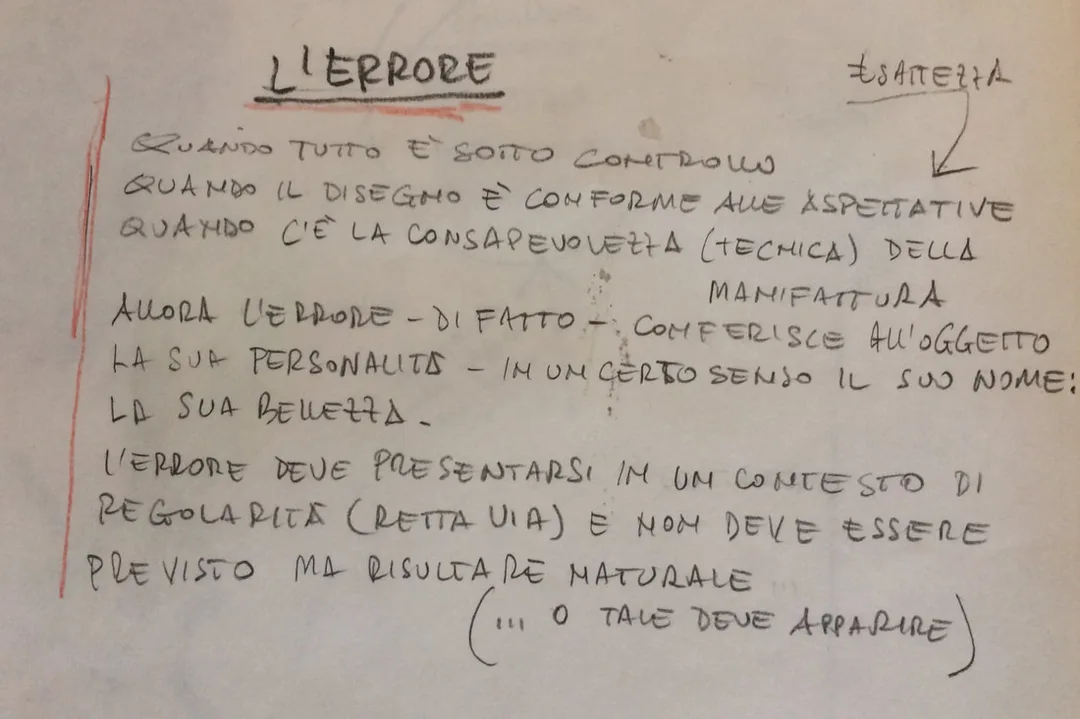 L'ERRORE
ESATTEZZA
QUANDO TUTTO E' SOTTO CONTROLLO
QUANDO IL DISEGNO È CONFORME ALLE ASPETTATIVE
QUANDO C'È LA CONSAPEVOLEZZA (TECNICA) DELLA
MANIFATTURA
ALLORA L'ERRORE - DI FATTO - CONFERISCE ALL'OGGETTO
LA SUA PERSONALITÀ - IN UN CERTO SENSO IL SUO NOME:
LA SUA BELLEZZA.
L'ERRORE DEVE PRESENTARSI IN UN CONTESTO DI
REGOLARITÀ (RETTA VIA) E NON DEVE ESSERE
PREVISTO MA RISULTARE NATURALE
(... O TALE DEVE APPARIRE)